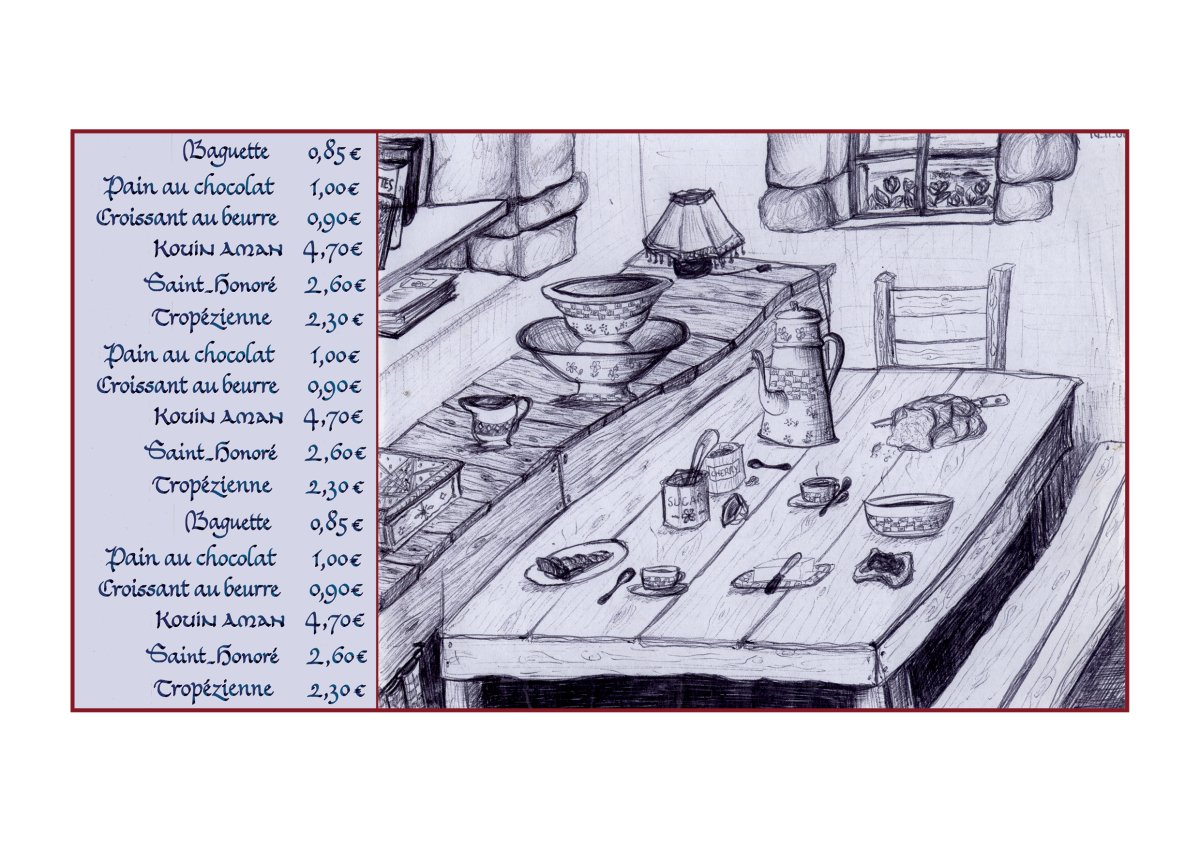 Baguette 0,85€
Pain au chocolat 1,00€
Croissant au beurre 0,90€
Kouin aman 4,70€
Saint-Honoré 2,60€
Tropézienne 2,30€
Pain au chocolat 1,00€
Croissant au beurre 0,90€
Kouin aman 4,70€
Saint-Honoré 2,60€
Tropézienne 2,30€
Baguette 0,85€
Pain au chocolat 1,00€
Croissant au beurre 0,90€
Kouin aman 4,70€
Saint-Honoré 2,60€
Tropézienne 2,30€
CHERRY
SUGAR